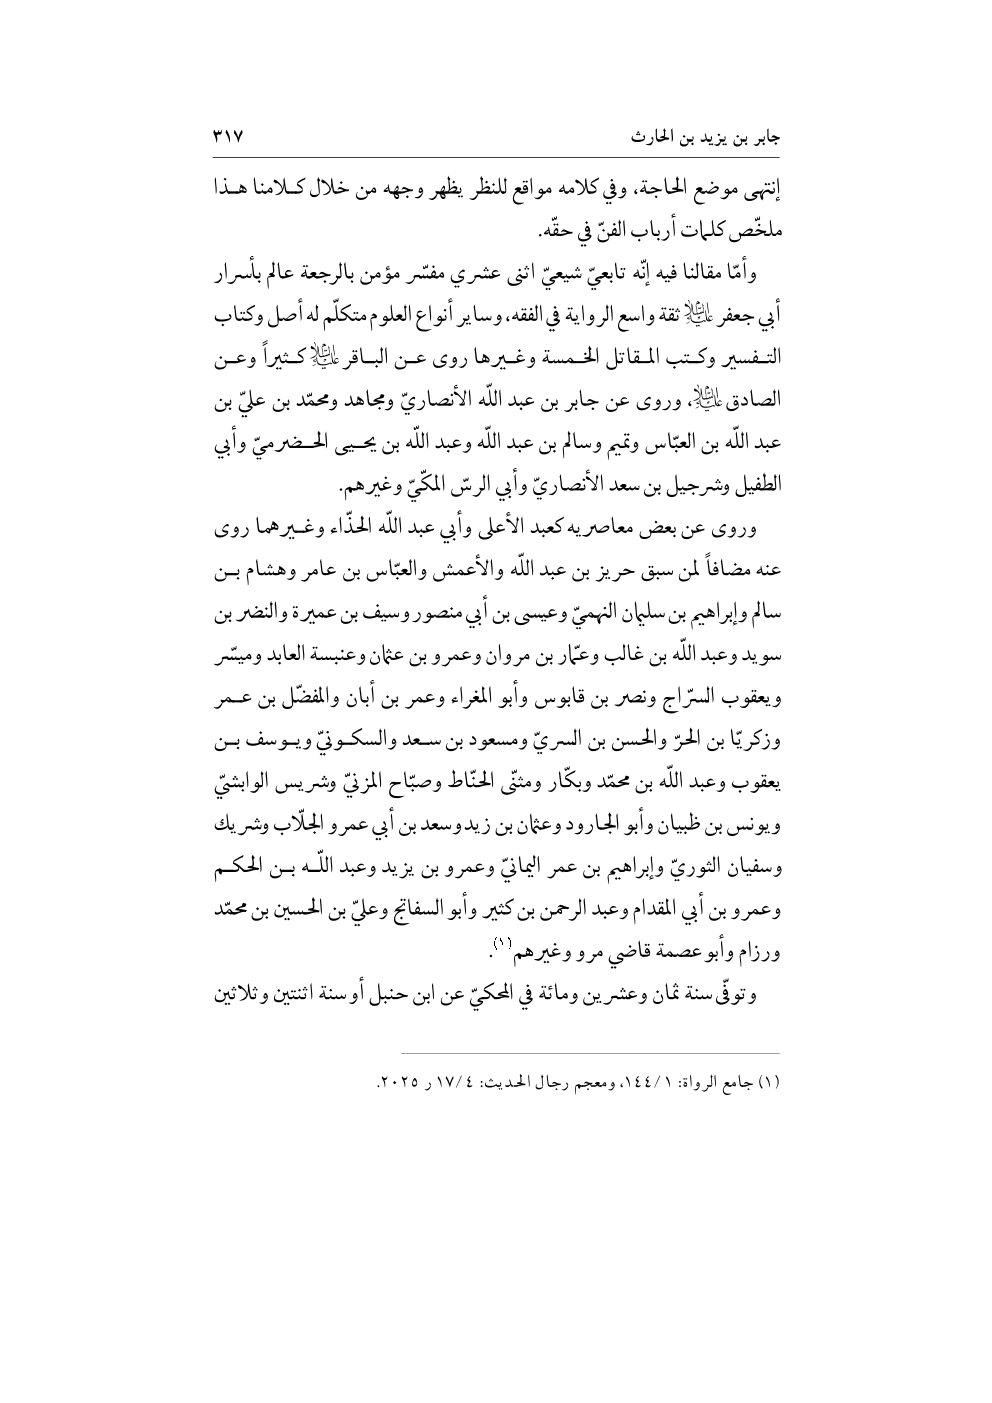 جابر بن يزيد بن الحارث ٣١٧
إنتهى موضع الحاجة، وفي كلامه مواقع للنظر يظهر وجهه من خلال كلامنا هذا
ملخّص كلمات أرباب الفنّ في حقّه.
وأمّا مقالنا فيه إنّه تابعيّ شيعيّ اثنى عشري مفسّر مؤمن بالرجعة عالم بأسرار
أبي جعفر عليه السلام ثقة واسع الرواية في الفقه، وساير أنواع العلوم متكلّم له أصل وكتاب
التفسير وكتب المقاتل الخمسة وغيرها روى عن الباقر عليه السلام كثيراً وعن
الصادق عليه السلام، وروى عن جابر بن عبد اللّه الأنصاريّ ومجاهد ومحمّد بن عليّ بن
عبد اللّه بن العبّاس وتميم وسالم بن عبد اللّه وعبد اللّه بن يحيى الحضرميّ وأبي
الطفيل وشرجيل بن سعد الأنصاريّ وأبي الرسّ المكّيّ وغيرهم.
وروى عن بعض معاصريه كعبد الأعلى وأبي عبد اللّه الحذّاء وغيرهما روى
عنه مضافاً لمن سبق حريز بن عبد اللّه والأعمش والعبّاس بن عامر وهشام بن
سالم وإبراهيم بن سليمان النهميّ وعيسى بن أبي منصور وسيف بن عميرة والنضر بن
سويد وعبد اللّه بن غالب وعمّار بن مروان وعمرو بن عثمان وعنبسة العابد وميسّر
ويعقوب السرّاج ونصر بن قابوس وأبو المغراء وعمر بن أبان والمفضّل بن عمر
وزكريّا بن الحرّ والحسن بن السريّ ومسعود بن سعد والسكونيّ ويوسف بن
يعقوب وعبد اللّه بن محمّد وبكّار ومثنّى الحنّاط وصبّاح المزنيّ وشريس الوابشيّ
ويونس بن ظبيان وأبو الجارود وعثمان بن زيد وسعد بن أبي عمرو الجلّاب وشريك
وسفيان الثوريّ وإبراهيم بن عمر اليمانيّ وعمرو بن يزيد وعبد اللّه بن الحكم
وعمرو بن أبي المقدام وعبد الرحمن بن كثير وأبو السفاتج وعليّ بن الحسين بن محمّد
ورزام وأبو عصمة قاضي مرو وغيرهم(١).
وتوفّى سنة ثمان وعشرين ومائة في المحكيّ عن ابن حنبل أو سنة اثنتين وثلاثين
(١) جامع الرواة: ١/ ١٤٤، ومعجم رجال الحديث: ٤/ ١٧ ر ٢٠٢٥.